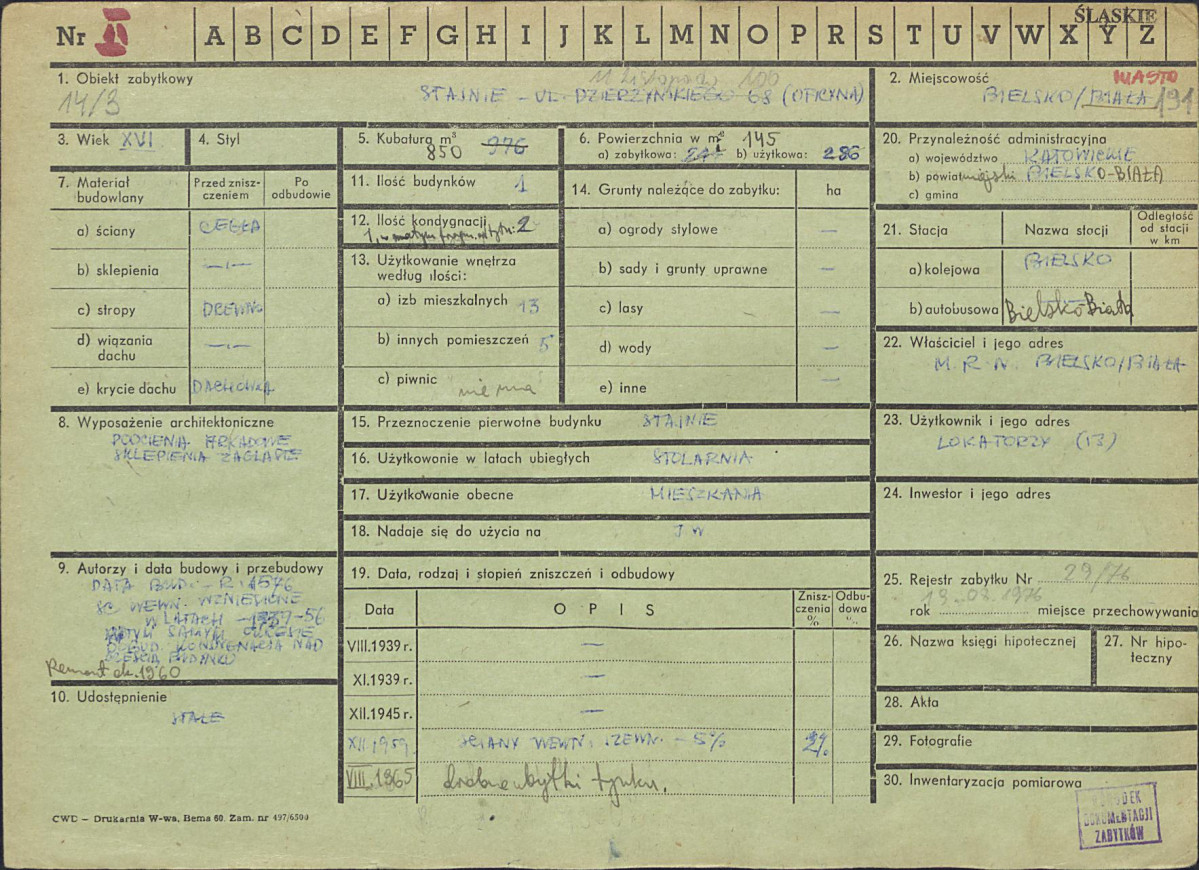 ŚLĄSKIE
Nr II A B C D E F G H I J K L M N O P R S T U V W X Y Z
1. Obiekt zabytkowy
14/3
11 Listopada 100
STAJNIE - UL. DZIERŻYŃSKIEGO 68 (OFICYNA)
2. Miejscowość
MIASTO
BIELSKO/BIAŁA 191
3. Wiek XVI
4. Styl
5. Kubatura m³
850 976
6. Powierzchnia w m² 145
a) zabytkowa: b) użytkowa: 286
20. Przynależność administracyjna
a) województwo KATOWICKIE
b) powiat miejski BIELSKO-BIAŁA
c) gmina
7. Materiał budowlany
Przed zniszczeniem
Po odbudowie
a) ściany CEGŁA
b) sklepienia -"-
c) stropy DREWNO
d) wiązania dachu -"-
e) krycie dachu DACHÓWKA
11. Ilość budynków 1
12. Ilość kondygnacji 2
1, w małym fragm.
13. Użytkowanie wnętrza
według ilości:
a) izb mieszkalnych 13
b) innych pomieszczeń 5
c) piwnic nie ma
14. Grunty należące do zabytku: ha
a) ogrody stylowe —
b) sady i grunty uprawne —
c) lasy —
d) wody —
e) inne —
21. Stacja
Nazwa stacji
Odległość od stacji w km
a) kolejowa BIELSKO
b) autobusowa Bielsko-Biała
22. Właściciel i jego adres
M. R. N. BIELSKO/BIAŁA
8. Wyposażenie architektoniczne
PODCIENIA ARKADOWE
SKLEPIENIA ZAGLAPIE
15. Przeznaczenie pierwotne budynku STAJNIE
16. Użytkowanie w latach ubiegłych STOLARNIA
17. Użytkowanie obecne MIESZKANIA
18. Nadaje się do użycia na J W
23. Użytkownik i jego adres
LOKATORZY (13)
24. Inwestor i jego adres
9. Autorzy i data budowy i przebudowy
DATA BUD. - R. 1576
SC. WEWN. WZNIESIONE
W LATACH -56
W TYM SAMYM OKRESIE
DOBUD. KONDYGNACJA NAD
CZĘŚCIĄ BUDYNKU
Remont ok. 1960
10. Udostępnienie
STAŁE
19. Data, rodzaj i stopień zniszczeń i odbudowy
Data
OPIS
Zniszczenia %
Odbudowa %
VIII.1939 r. —
XI.1939 r. —
XII.1945 r. —
XII 1959 ŚCIANY WEWN. I ZEWN. - 5%
VIII.1965 drobne ubytki tynku.
25. Rejestr zabytku Nr 29/76
13.03.1976
rok miejsce przechowywania
26. Nazwa księgi hipotecznej
27. Nr hipoteczny
28. Akta
29. Fotografie
30. Inwentaryzacja pomiarowa
OŚRODEK
DOKUMENTACJI
ZABYTKÓW
CWD - Drukarnia W-wa, Bema 60. Zam. nr 497/6500